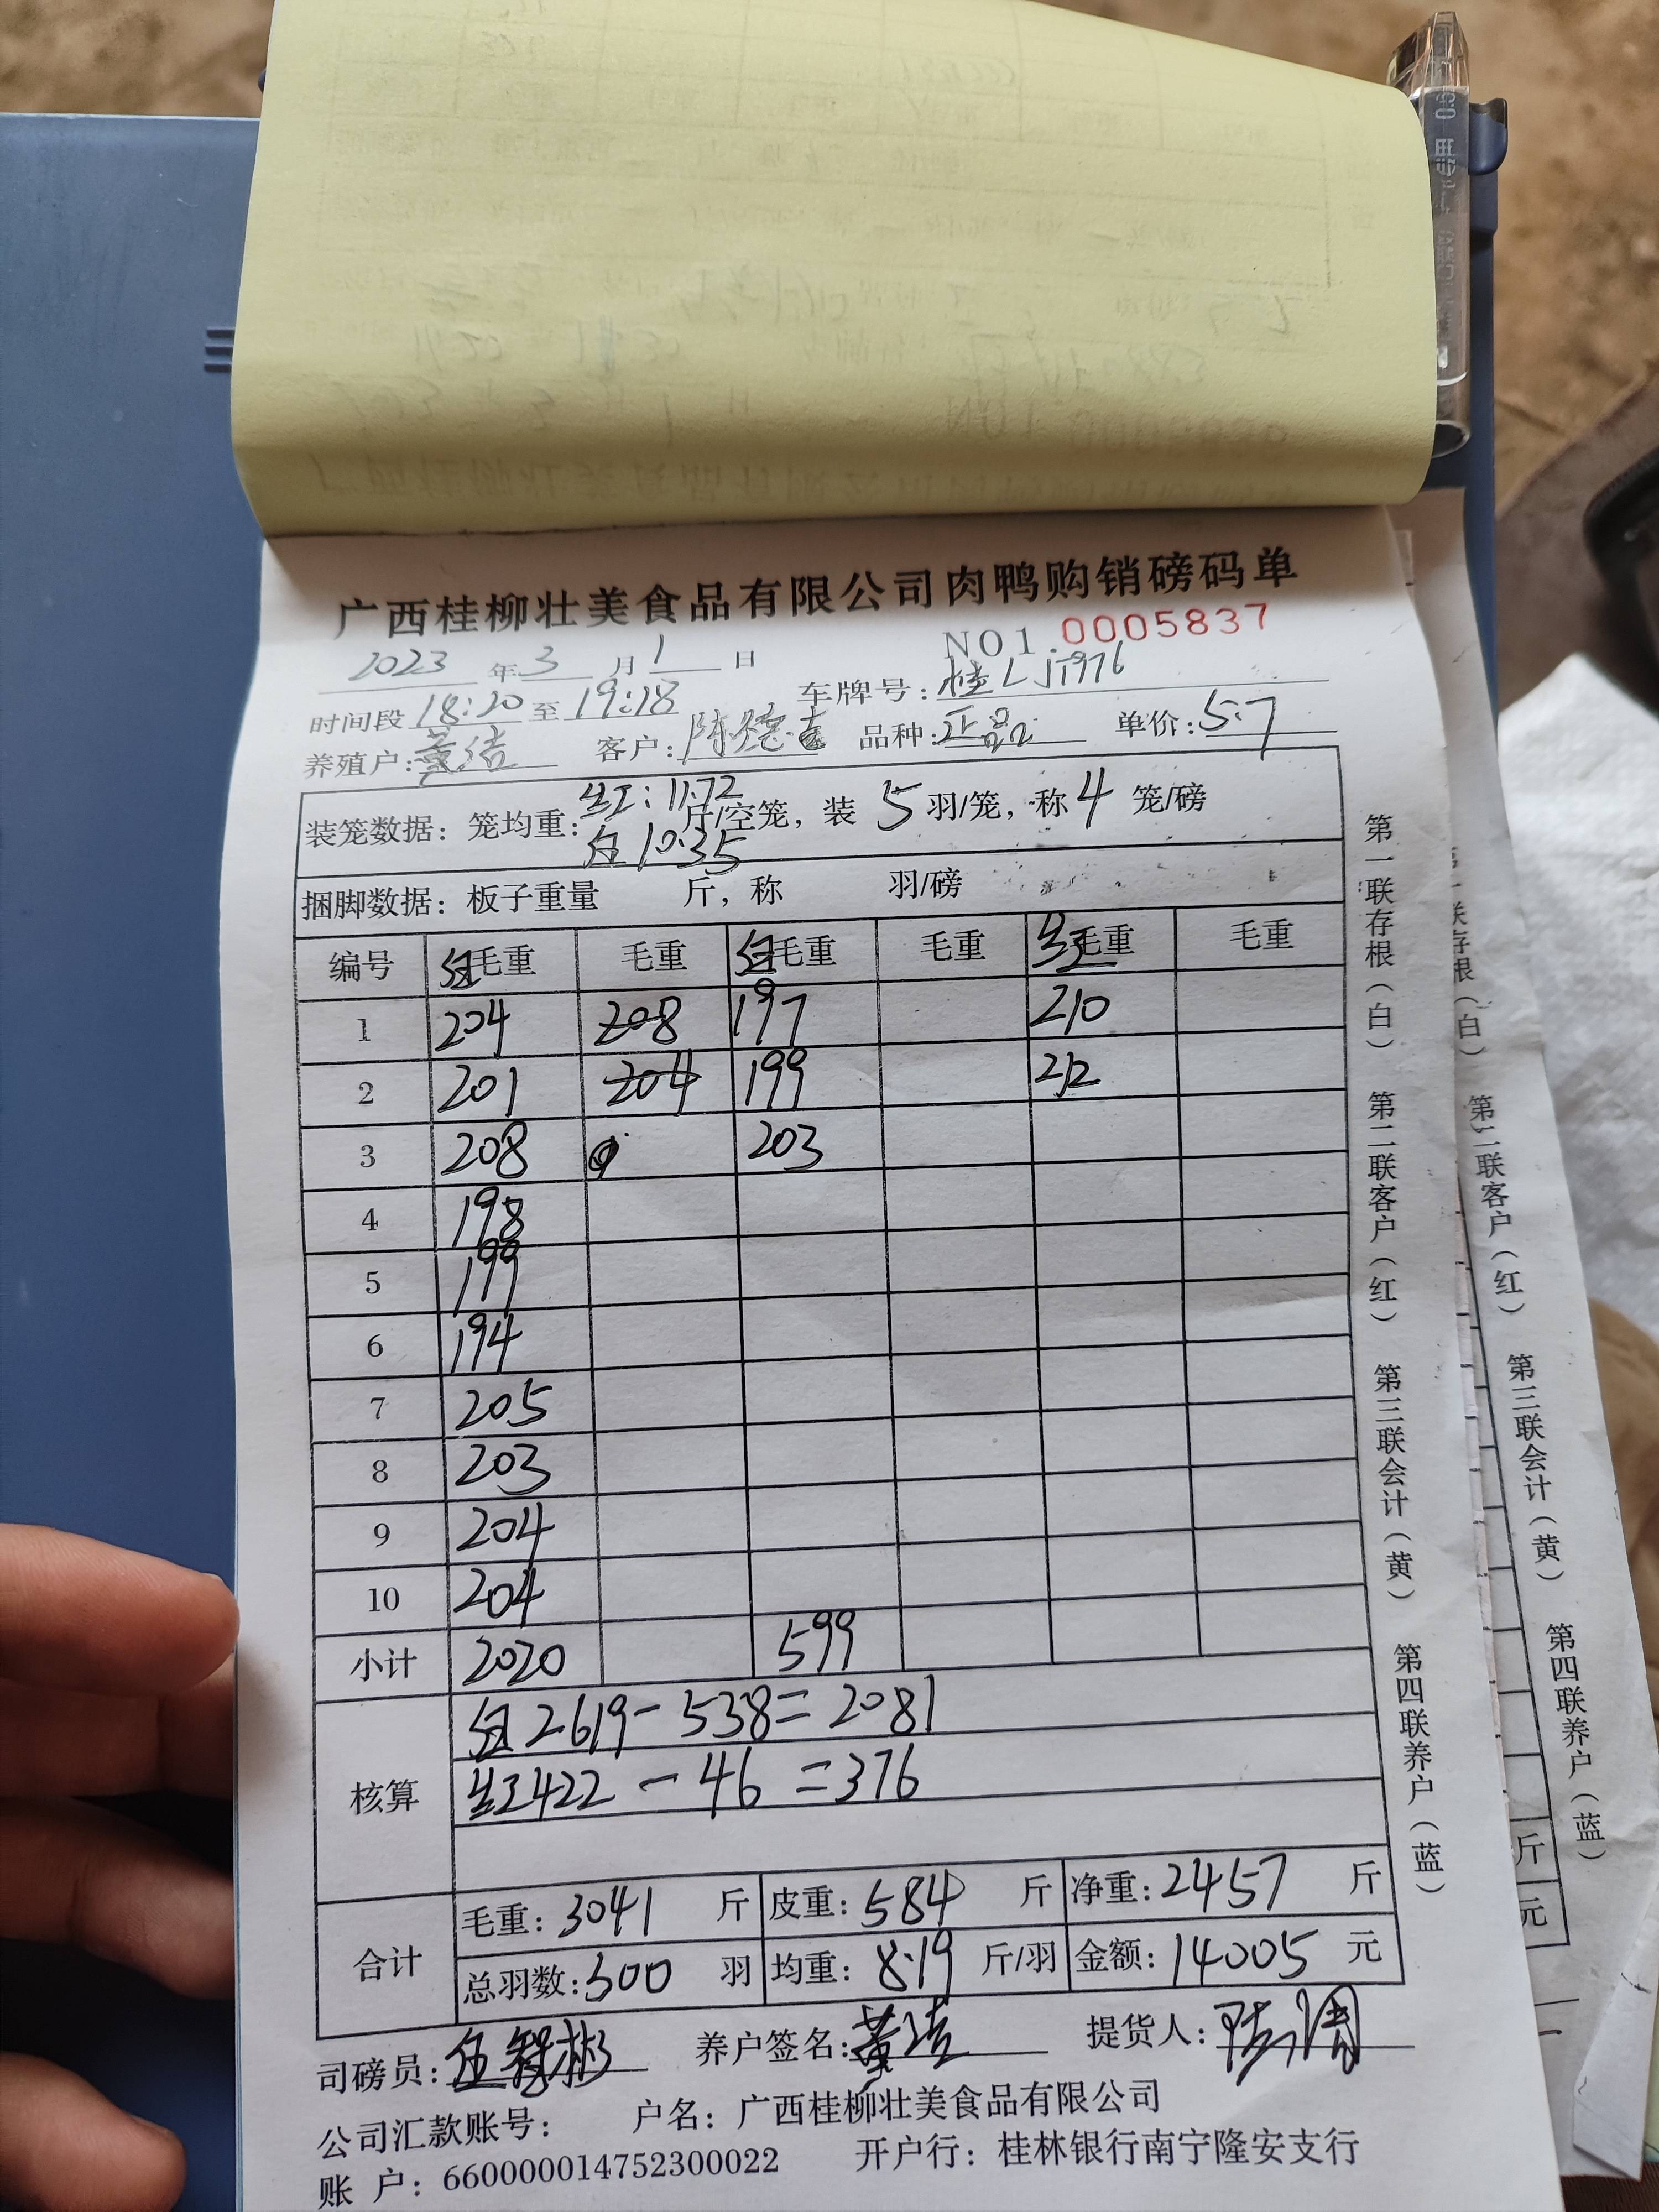 广西桂柳壮美食品有限公司肉鸭购销磅码单
2023 年 3 月 1 日 NO1. 0005837
时间段 18:20 至 19:18 车牌号: 桂L
养殖户: 客户: 陈德 品种: 正品 单价: 5.7
装笼数据: 笼均重: 红: 11.72 白 10.35 斤/空笼, 装 5 羽/笼, 称 4 笼/磅
捆脚数据: 板子重量 斤, 称 羽/磅
编号 白毛重 毛重 白毛重 毛重 红毛重 毛重
1 204 208 197 210
2 201 204 199 212
3 208 203
4 198
5 199
6 194
7 205
8 203
9 204
10 204
小计 2020 599
核算 白 2619 - 538 = 2081
红 422 - 46 = 376
合计 毛重: 3041 斤 皮重: 584 斤 净重: 2457 斤
总羽数: 300 羽 均重: 8.19 斤/羽 金额: 14005 元
司磅员: 养户签名: 提货人:
公司汇款账号: 户名: 广西桂柳壮美食品有限公司
账 户: 660000014752300022 开户行: 桂林银行南宁隆安支行
第一联存根(白) 第二联客户(红) 第三联会计(黄) 第四联养户(蓝)
第二联客户(红) 第三联会计(黄) 第四联养户(蓝)
斤
元